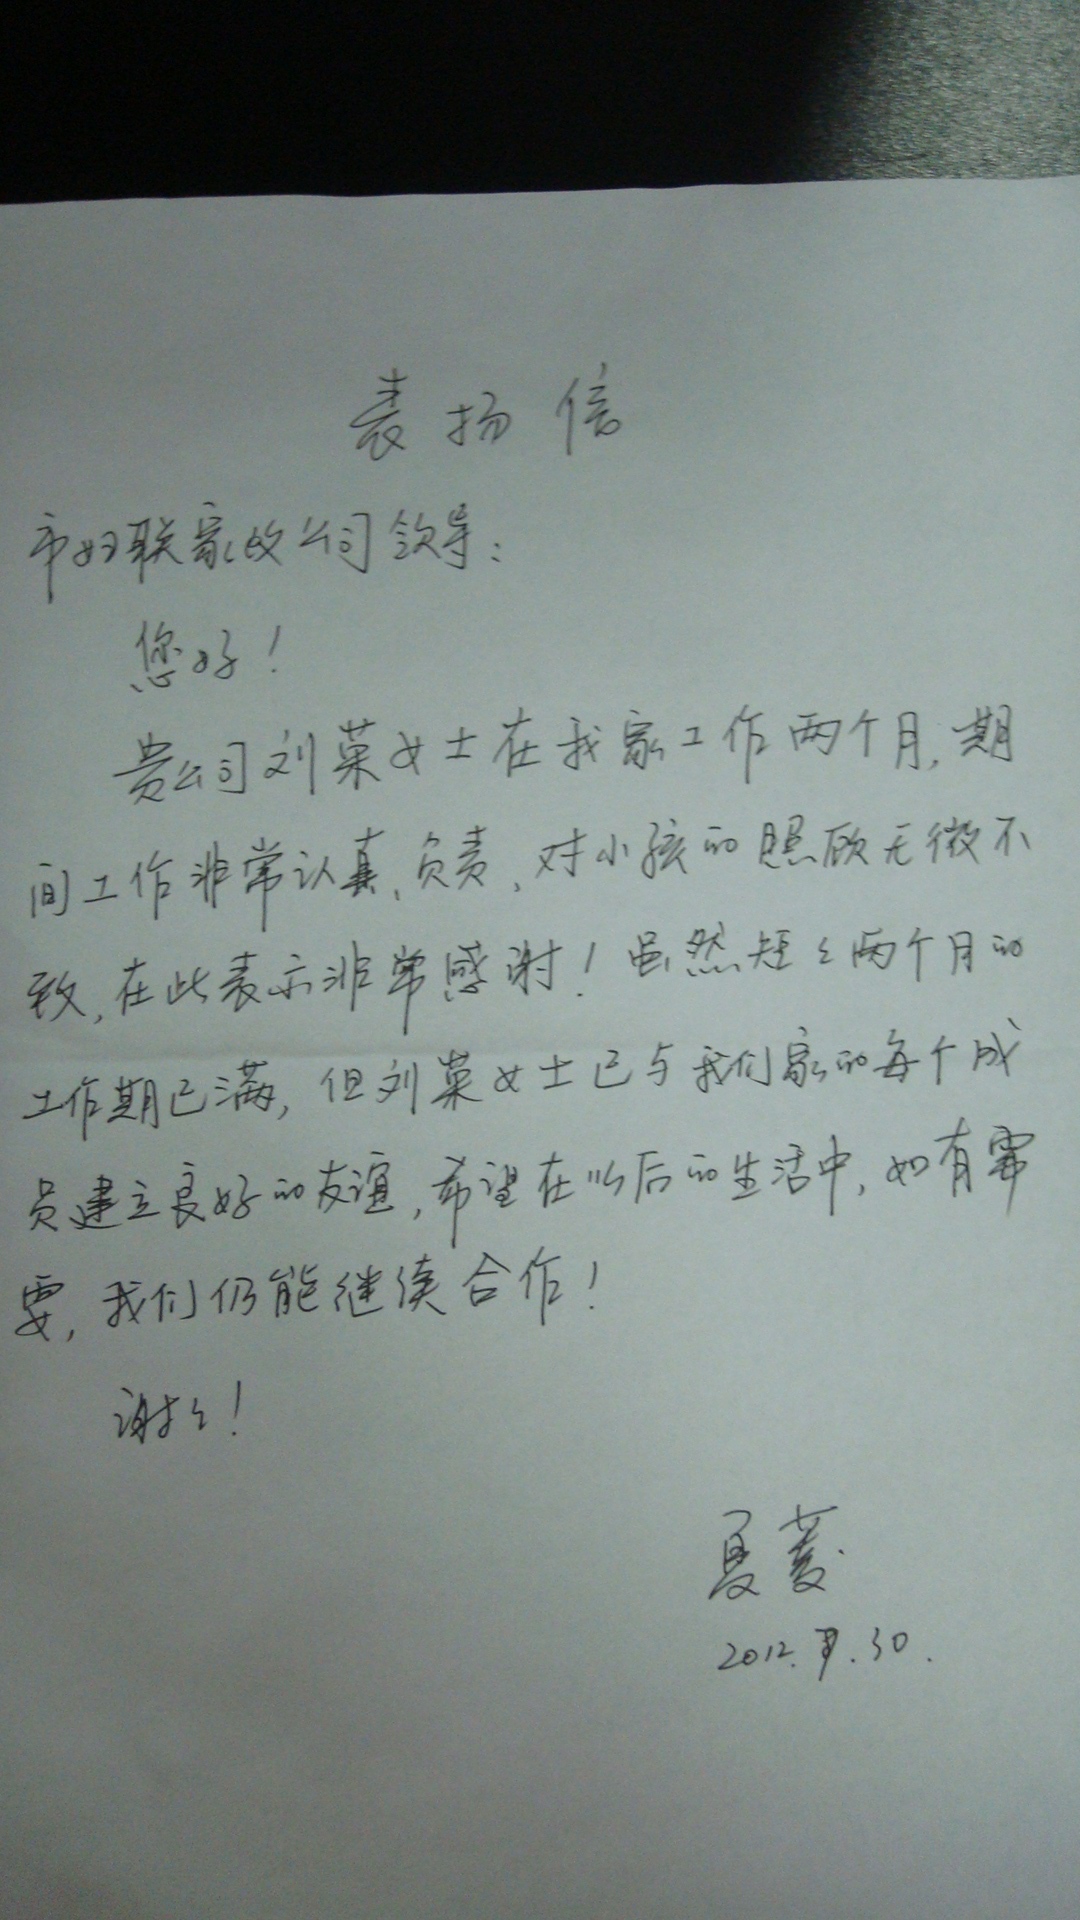 表扬信
市妇联家政公司领导：
您好！
贵公司刘菊女士在我家工作两个月，期
间工作非常认真、负责，对小孩的照顾无微不
致，在此表示非常感谢！虽然短々两个月的
工作期已满，但刘菊女士已与我们家的每个成
员建立良好的友谊，希望在以后的生活中，如有需
要，我们仍能继续合作！
谢々！
夏菱
2012. .30.